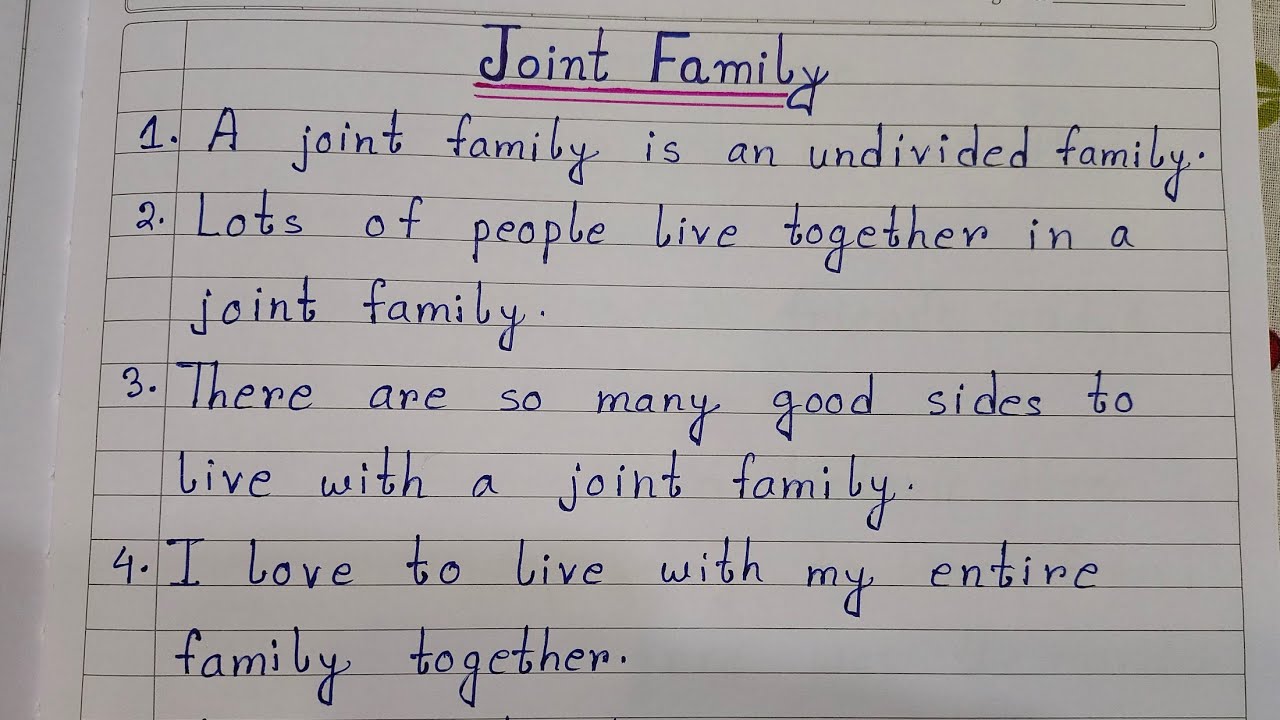 Joint Family
1. A joint family is an undivided family.
2. Lots of people live together in a
joint family.
3. There are so many good sides to
live with a joint family.
4. I love to live with my entire
family together.